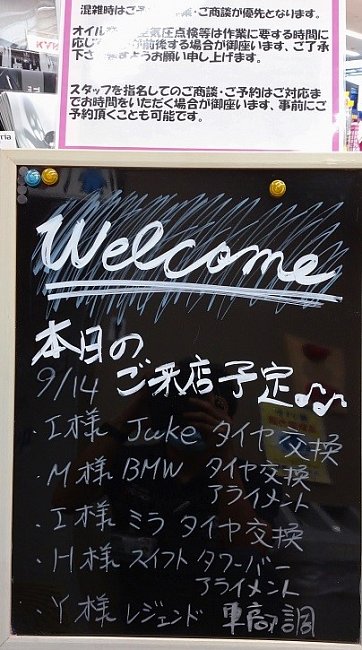 混雑時はご予 ・ご商談が優先となります。
オイル 空気圧点検等は作業に要する時間に
応じて が前後する場合が御座います、ご了承
下さ ますようお願い申し上げます。
スタッフを指名してのご商談・ご予約はご対応ま
でお時間をいただく場合が御座います、事前にご
予約頂くことも可能です。
Welcome
本日の
9/14 ご来店予定
・I様 Juke タイヤ交換
・M様 BMW タイヤ交換
アライメント
・I様 ミラ タイヤ交換
・H様 スイフト タワーバー
アライメント
・Y様 レジェンド 車高調